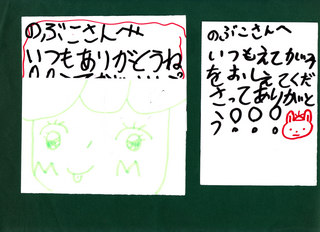 のぶこさんへ
いつもありがとうね
のぶこさんへ
いつもえてがみ
をおしえてくだ
さってありがと
う！！！